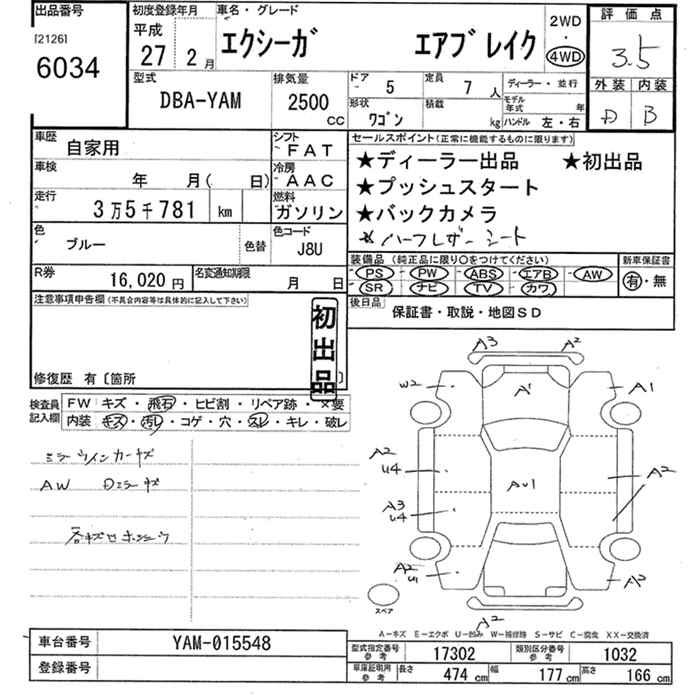 出品番号
[2126]
6034
初度登録年月
平成
27 2月
車名・グレード
エクシーガ エアブレイク
2WD
・
4WD
評価点
3.5
外装 内装
D B
型式
DBA-YAM
排気量
2500
cc
ドア
5
定員
7 人
ディーラー・並行
形状
ワゴン
積載
kg
モデル年式 年
ハンドル 左・右
車歴
自家用
シフト
FAT
車検
年 月( 日)
冷房
AAC
走行
3万5千781 km
燃料
ガソリン
色
ブルー
色替
色コード
J8U
R券
16,020円
名変通知期限
月 日
セールスポイント(正常に機能するものに限ります)
★ディーラー出品 ★初出品
★プッシュスタート
★バックカメラ
★ハーフレザーシート
装備品(純正品に限り○をつけてください)
PS PW ABS エアB AW
SR ナビ TV カワ
新車保証書
有・無
後日品
保証書・取説・地図SD
注意事項申告欄(不具合内容等は具体的に記入して下さい)
初出品
修復歴 有〔箇所 〕
検査員記入欄
FW キズ・飛石・ヒビ割・リペア跡・×要
内装 キズ・汚レ・コゲ・穴・スレ・キレ・破レ
ミラーウインカーキズ
AW Dミラーキズ
各キズセホンシウ
A3 A2
W2 A' A1
A2
U4
AU1
A2
A3
U4
A2
U1
A3
スペア
A2
A-キズ E-エクボ U-凹み W-補修跡 S-サビ C-腐食 XX-交換済
車台番号 YAM-015548
登録番号
型式指定番号 参考 17302
類別区分番号 参考 1032
車庫証明用 参考 長さ 474 cm 幅 177 cm 高さ 166 cm